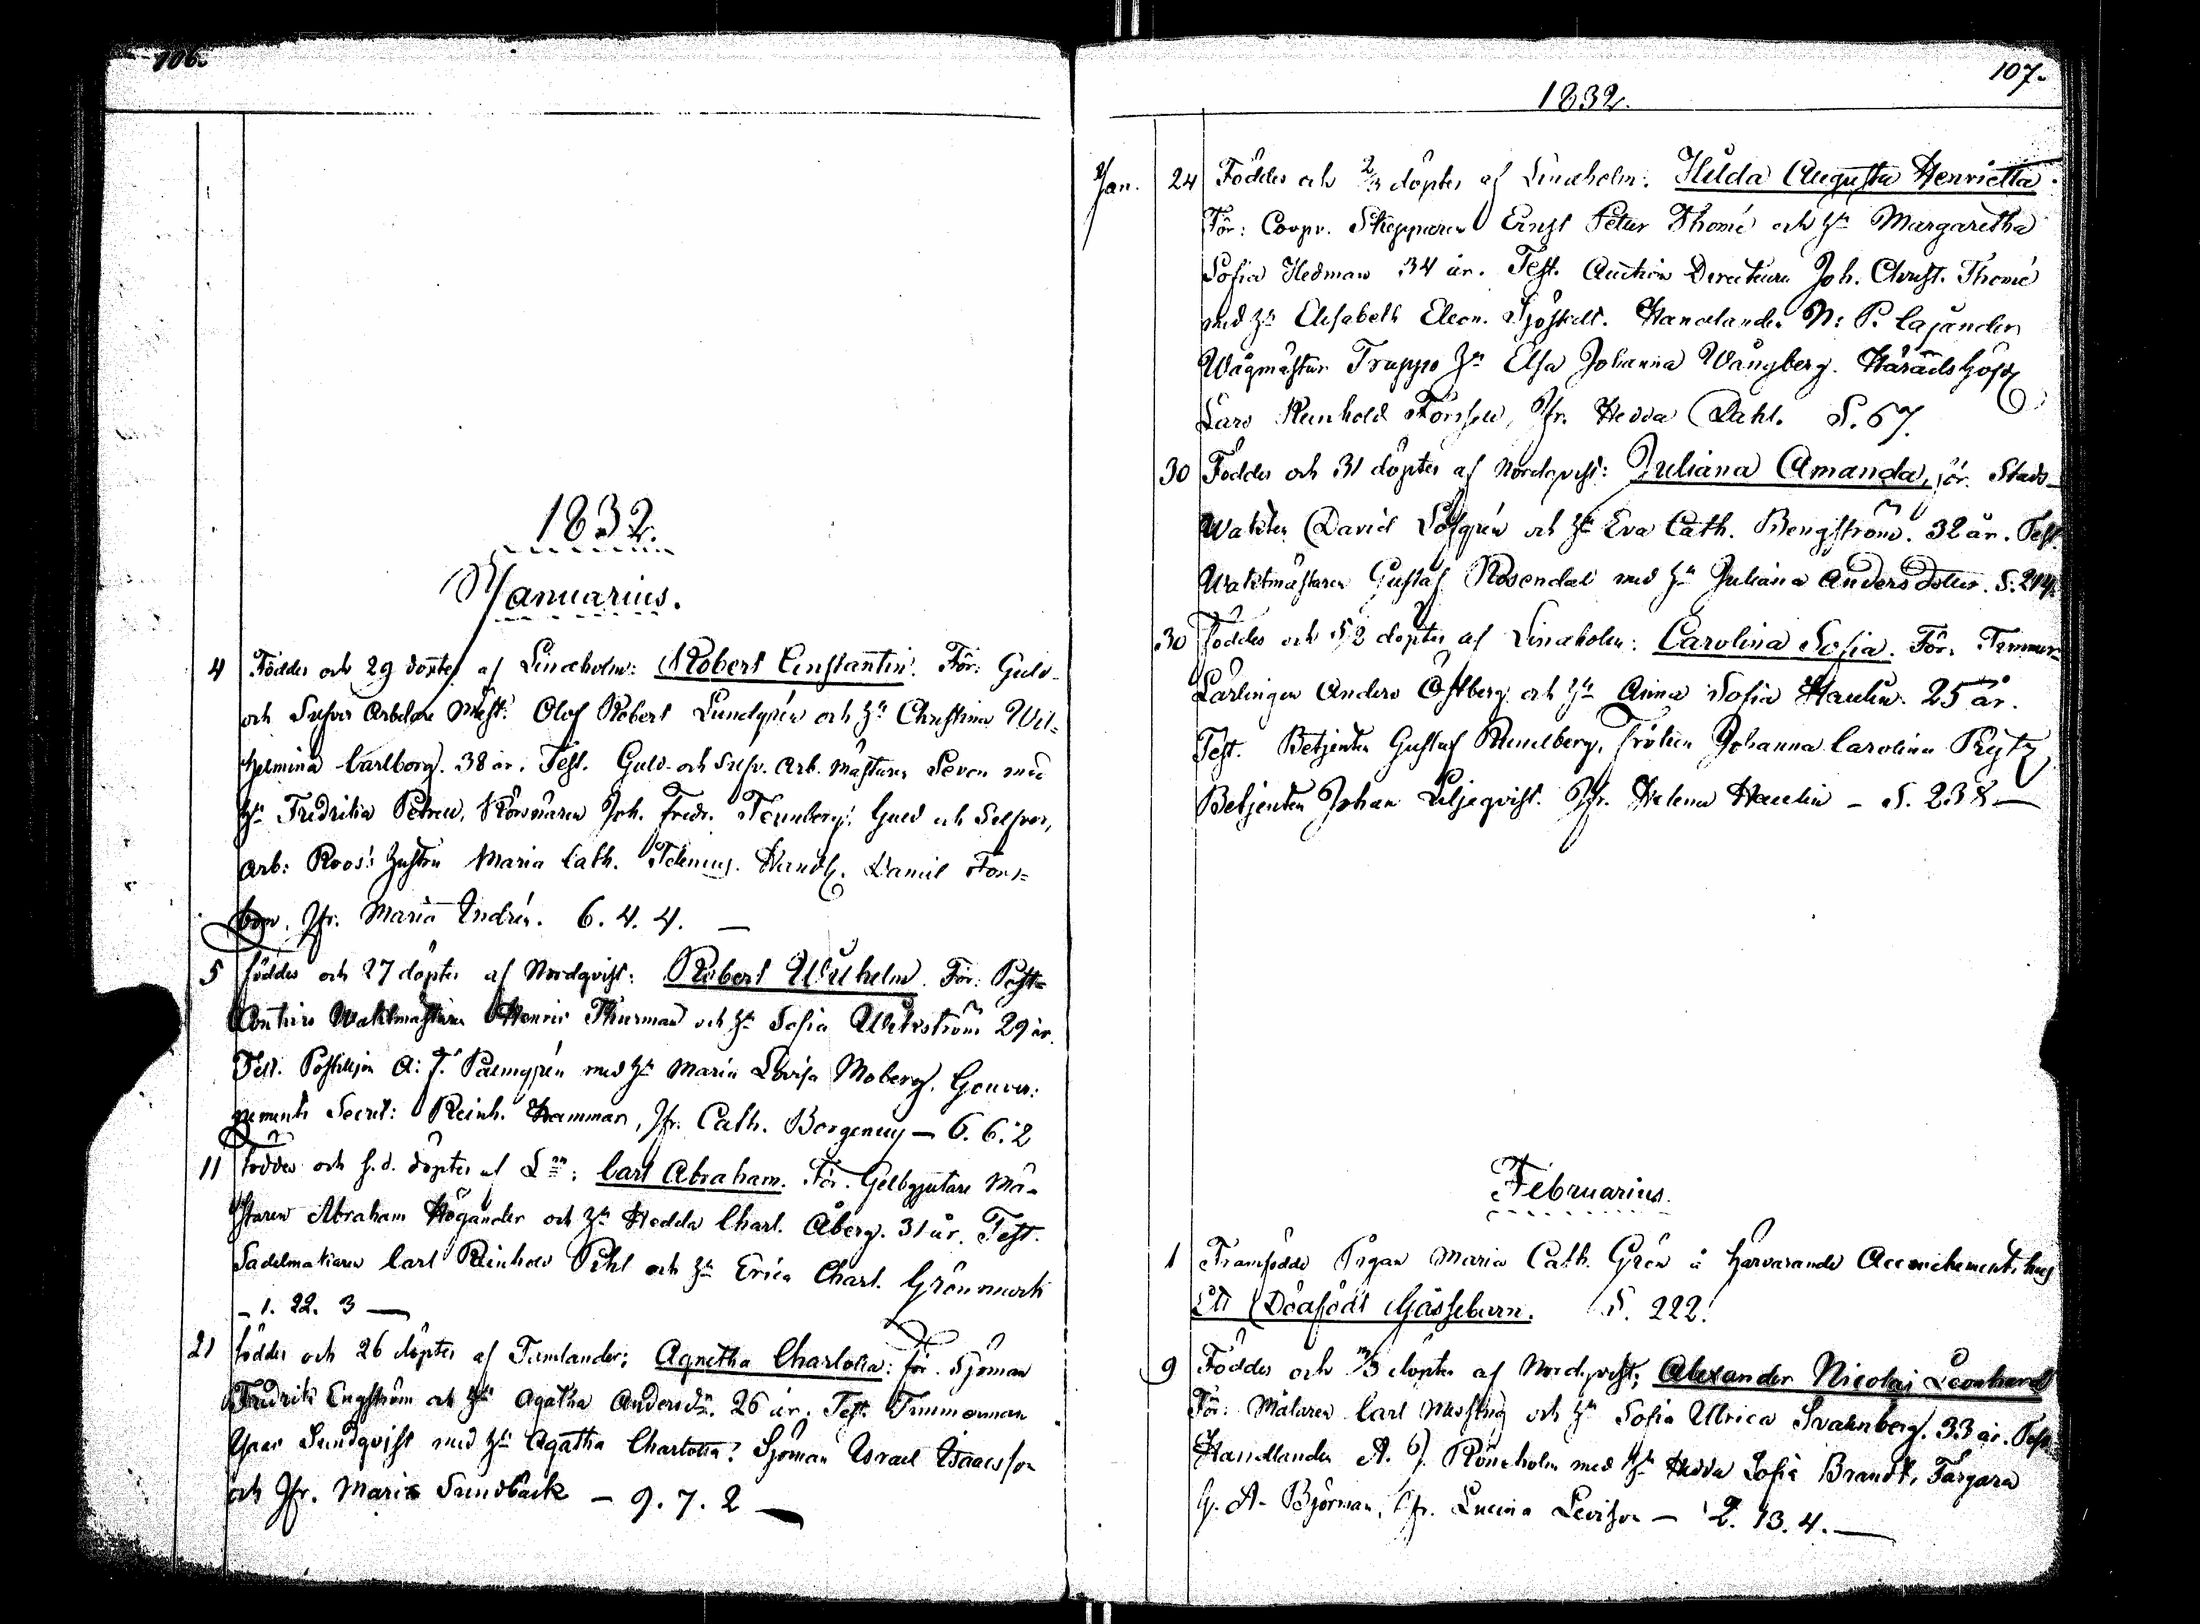 106.
1832.
Januarius.
4 Föddes och 29 döptes af Lindeholm: Robert Constantin. För: Guld-
och Silfver Arbetare Mest. Olof Robert Lundgrén och H:u Christina Wil-
helmina Carlborg. 38 år. Test. Guld- och Silfv. Arb. Mästaren Seven med
H:u Fredrika Joh. Fredr. Tennberg: Guld och Silfver,
Arb: Roos: hustru Maria Cath. Handl. Daniel Fors-
bom, Jfr. Maria Andrén. 6. 4. 4. —
5 föddes och 27 döptes af Nordqvist: Robert Wilhelm. För: Post-
Contoirs Waktmästaren Henric Thurman och H:u Sofia 29 år.
Test. Postiljon A: F. Palmgrén med H:u Maria Lovisa Moberg. Gouver-
nements Secret: Reinh. Hammar, Jfr. Cath. — 6. 6. 2
11 föddes och s. d. döptes af L:m: Carl Abraham. För. Gelbgjutare Mä-
staren Abraham Högander och H:u Hedda Charl. Åberg. 31 år. Test.
Sadelmakaren Carl Reinhold Pihl och H:u Erica Charl. Grönmark
— 1. 22. 3 —
21 föddes och 26 döptes af Tamlander; Agnetha Charlotta: för. Sjöman
Fredrik Engström och H:u Agatha Andersd:r. 26 år. Test. Timmerman
Isaac Sundqvist med H:u Agatha Charlotta: Sjöman Israel Isaacsson
och Jfr. Maria Sundbäck — 9. 7. 2 —
107.
1832.
Jan. 24 Föddes och 2/3 döptes af Lindeholm: Hilda Augusta Henrietta.
För: Coopv. Skepparen Ernst Petter Thomé och H:u Margaretha
Sofia Hedman 34 år. Test. Auction Directeuren Joh. Christ. Thomé
med H:u Elisabeth Eleon. Sjöstedt. Handlanden N: P. Cajander
Wågmästar Trapps H:u Elsa Johanna Wångberg. Häradshöfd
Lars Reinhold Jfr. Hedda Dahl. S. 67.
30 Föddes och 31 döptes af Nordqvist: Juliana Amanda, för. Stads-
Wakten David Löfgrén och H:u Eva Cath. Bengström. 32 år. Test.
Waktmästaren Gustaf Rosendal med H:u Juliana Andersdotter. S. 214.
30 föddes och 5/2 döptes af Lindeholm: Carolina Sofia. För: Timmer-
Lärlingen Anders Östberg och H:u Anna Sofia Haulin. 25 år.
Test. Betjenten Gustaf Fröken Johanna Carolina
Betjenten Johan Liljeqvist. Jfr. Helena Haulin — S. 238 —
Februarius.
1 Framfödde Pigan Maria Cath. Grön å härvarande Accouchementshus
Ett Dödfödt Gåssebarn. S. 222.
9 Föddes och döptes af Nordqvist; Alexander Nicolai Leonhard
För: Målaren Carl och H:u Sofia Ulrica Svahnberg. 33 år. Test.
Handlanden A. G. Röneholm med H:u Hedda Sofia Brandt, Färgaren
G. A. Björman, Jfr. Lucina Levitzon — 2. 13. 4. —